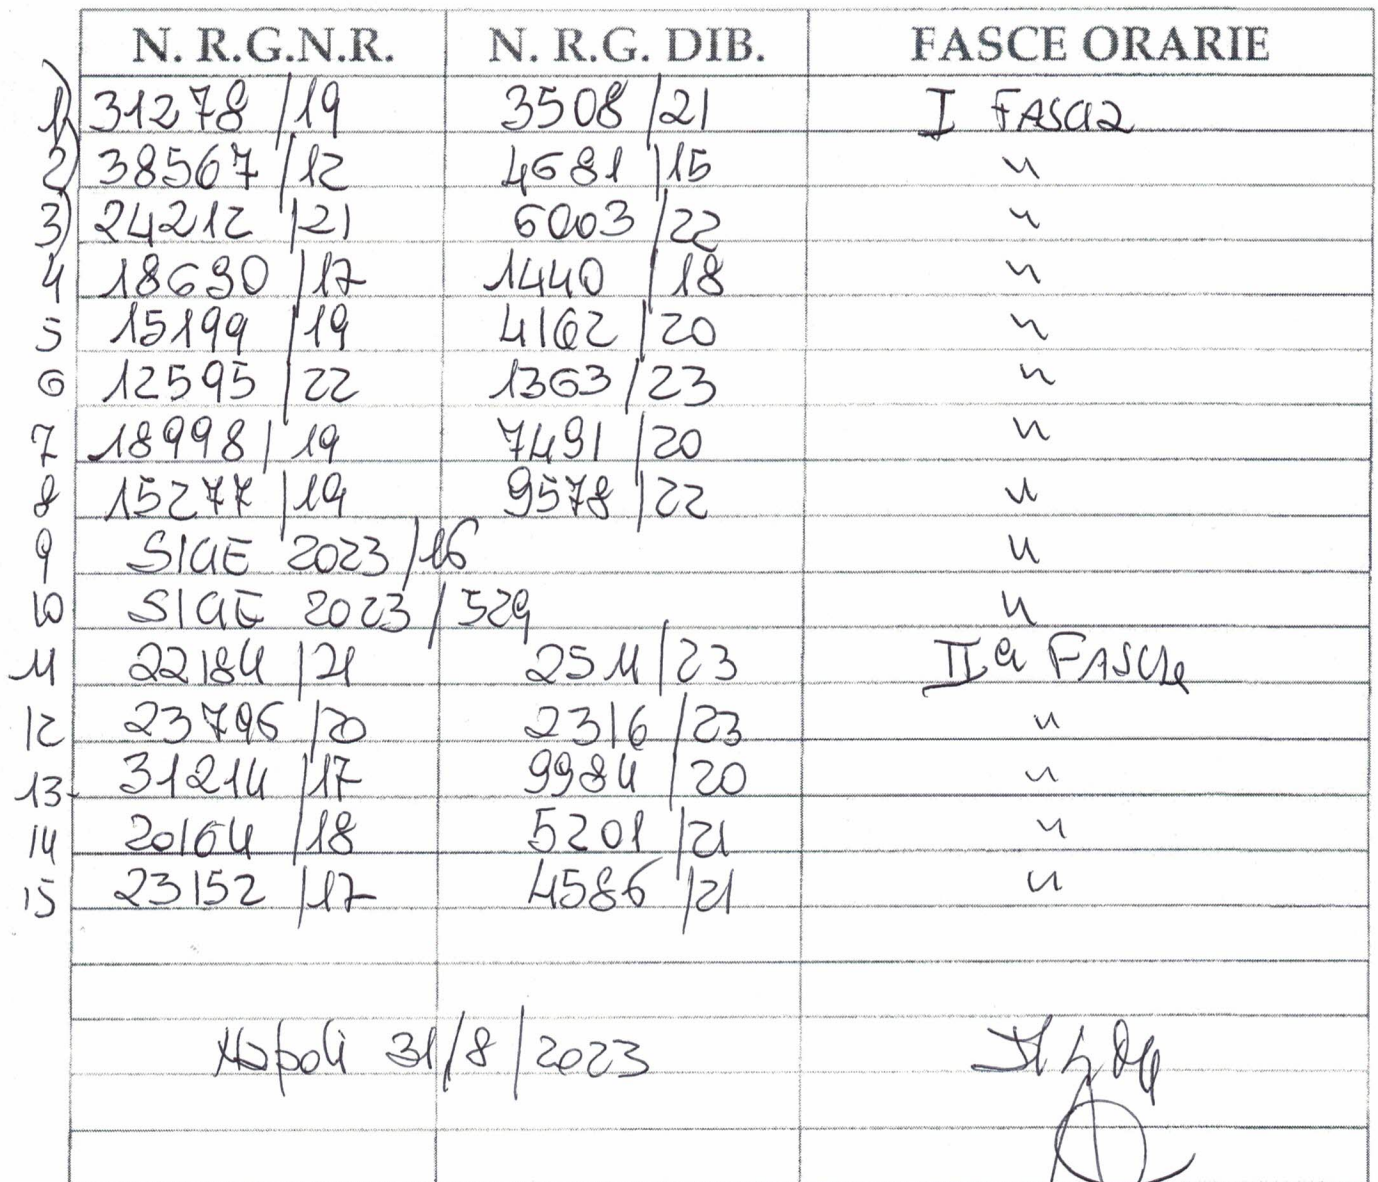 N. R.G.N.R. N. R.G. DIB. FASCE ORARIE
1) 31278/19 3508/21 I FASCIA
2) 38567/12 4681/15 "
3) 24212/21 6003/22 "
4 18690/17 1440/18 "
5 15199/19 4162/20 "
6 12595/22 1363/23 "
7 18998/19 7491/20 "
8 15277/19 9578/22 "
9 SIGE 2023/16 "
10 SIGE 2023/529 "
11 22184/21 2511/23 IIa FASCIA
12 23796/20 2316/23 "
13 31214/17 9984/20 "
14 20164/18 5201/21 "
15 23152/17 4586/21 "
Napoli 31/8/2023